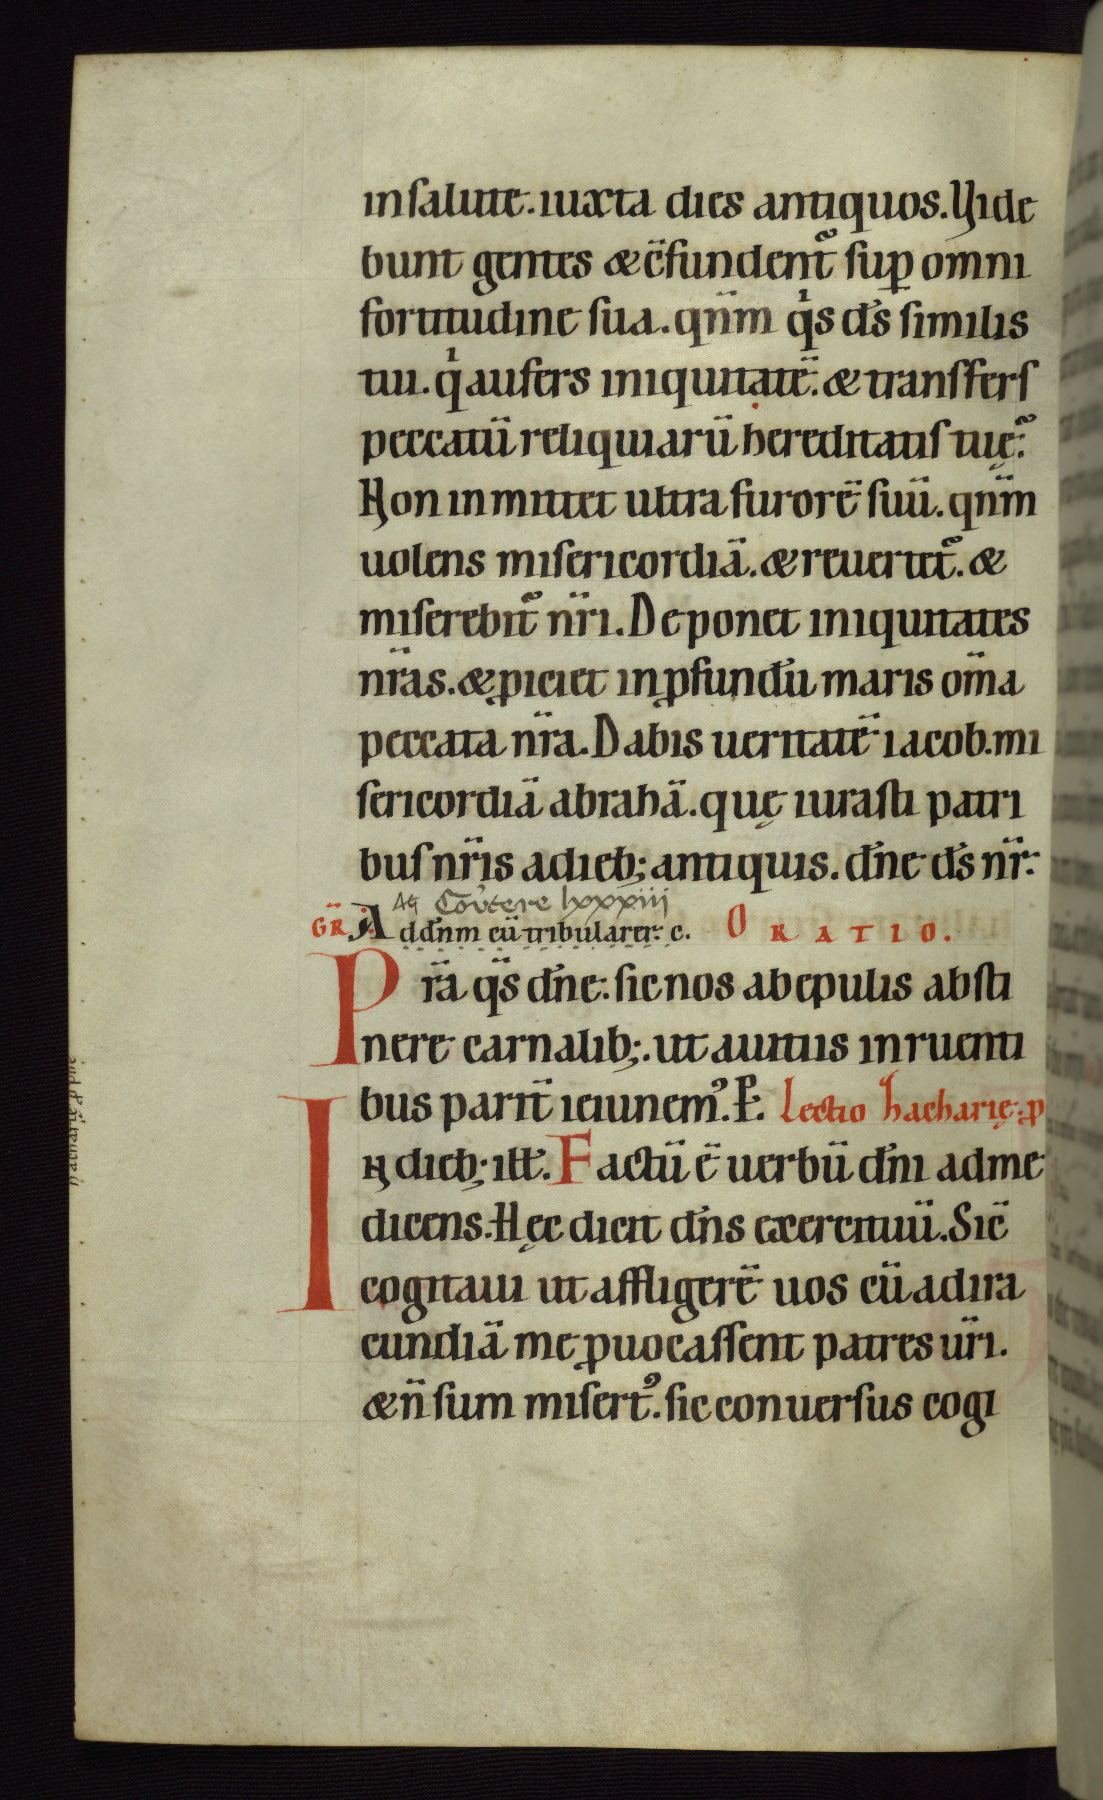 insalute. iuxta dies antiquos. Vide
bunt gentes & c̄fundent᷑ sup̱ omni
fortitudine sua. qn̄m qͥs d̄s similis
tui. qͥ aufers iniquitatē. & transfers
peccatū reliquiarū hereditatis tuę.
Non inmittet ultra furorē suū. qn̄m
uolens misericordiā. & reuertet᷑. &
miserebit᷑ nr̄i. Deponet iniquitates
nr̄as. & ꝓiciet inꝓfundū maris om̄a
peccata nr̄a. Dabis ueritatē iacob. mi
sericordiā abrahā. quę iurasti patri
bus nr̄is adieb; antiquis. dn̄e d̄s nr̄.
Cōu͛tere lxxxiiij
GR̄. Ad dn̄m cū tribularer. c. ORATIO.
Pr̄a qs̄ dn̄e. sic nos abepulis absti
nere carnalib;. ut auitiis inruenti
bus parit̄ ieiunemꝰ. P̱. Lectio hacharię. ꝓ
In dieb; ill̄. Factū ē uerbū dn̄i adme
dicens. Hęc dicit dn̄s exercituū. Sic̄
cogitaui ut affligerē uos cū adira
cundiā me ꝓuocassent patres ur̄i.
& n̄ sum misertꝰ. sic conuersus cogi